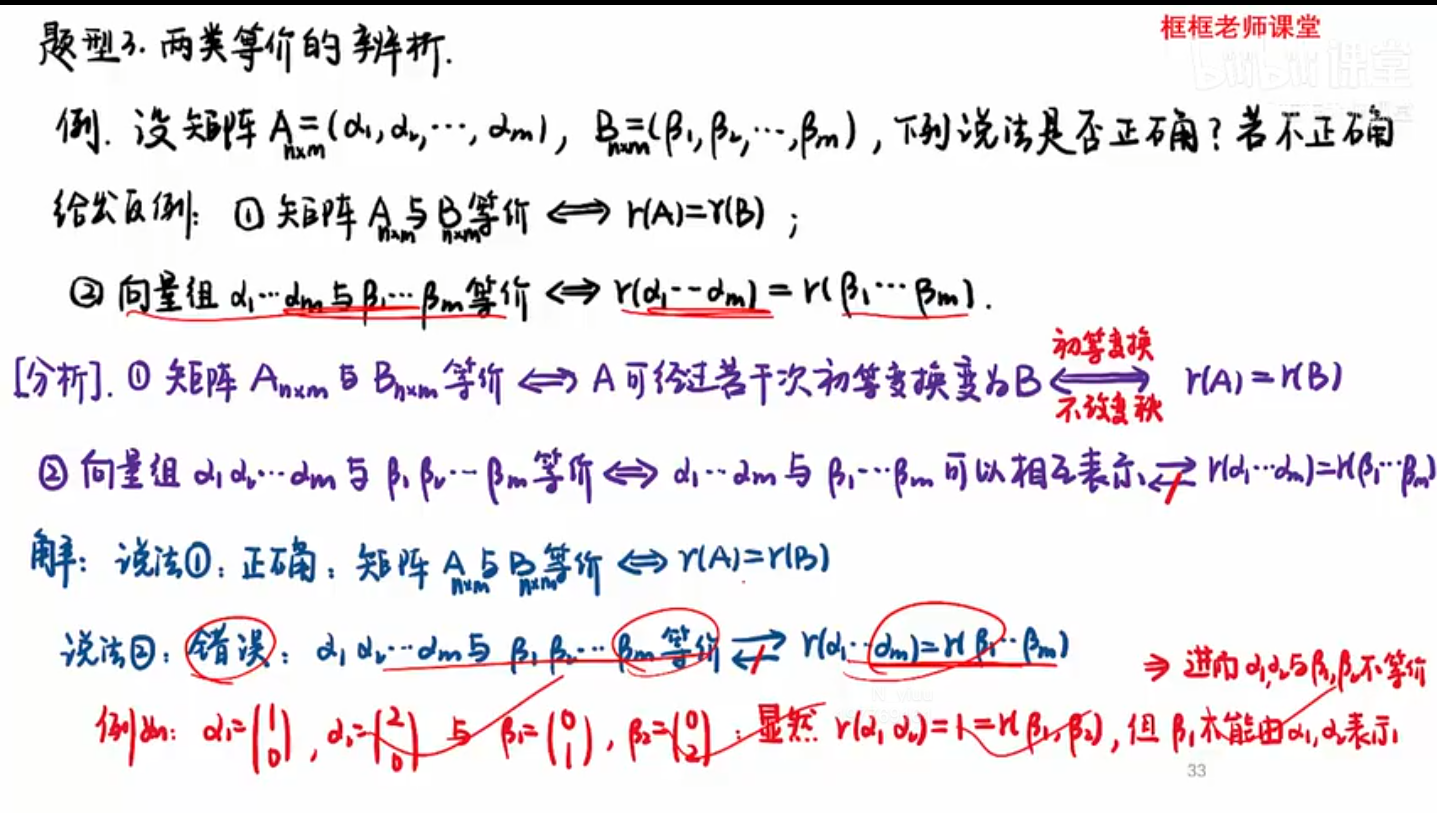 框框老师课堂
bilibili课堂
题型3. 两类等价的辨析.
例. 设矩阵 A=(α₁,α₂,⋯,αm), B=(β₁,β₂,⋯,βm), 下列说法是否正确? 若不正确
n×m n×m
给出反例: ① 矩阵 A n×m 与 B n×m 等价 ⟺ r(A)=r(B) ;
② 向量组 α₁⋯αm 与 β₁⋯βm 等价 ⟺ r(α₁⋯αm) = r(β₁⋯βm).
初等变换
[分析]. ① 矩阵 An×m 与 Bn×m 等价 ⟺ A 可经过若干次初等变换变为 B ⟺ r(A)=r(B)
不改变秩
② 向量组 α₁α₂⋯αm 与 β₁β₂⋯βm 等价 ⟺ α₁⋯αm 与 β₁⋯βm 可以相互表示 ⇄ r(α₁⋯αm)=r(β₁⋯βm)
解: 说法①: 正确: 矩阵 A n×m 与 B n×m 等价 ⟺ r(A)=r(B)
说法②: 错误: α₁α₂⋯αm 与 β₁β₂⋯βm 等价 ⇄ r(α₁⋯αm)=r(β₁⋯βm)
⇒ 进而 α₁,α₂ 与 β₁,β₂ 不等价
例如: α₁=(1 0), α₂=(2 0) 与 β₁=(0 1), β₂=(0 2) : 显然 r(α₁,α₂)=1=r(β₁,β₂), 但 β₁ 不能由 α₁,α₂ 表示
33